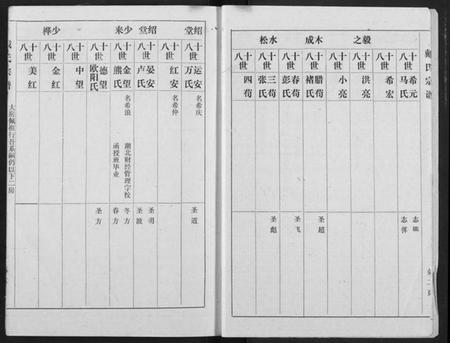 戴氏宗譜
毅之
木成
水松
十八世
希元
馬氏
志
志
十八世
希宏
十八世
洪亮
十八世
小亮
十八世
腊苟
褚氏
圣超
十八世
春苟
彭氏
圣飞
十八世
三苟
张氏
圣彪
十八世
四苟
绍堂
绍萱
少来
少桦
十八世
运安
万氏
名希庆
圣道
十八世
红安
名希仲
十八世
晏安
卢氏
圣明
圣波
十八世
金望
熊氏
名希浪
湖北财经管理学校
函授班毕业
冬方
春方
十八世
德望
欧阳氏
圣方
十八世
中望
十八世
金红
十八世
美红
大房佩推行吾系嗣仍以下二房